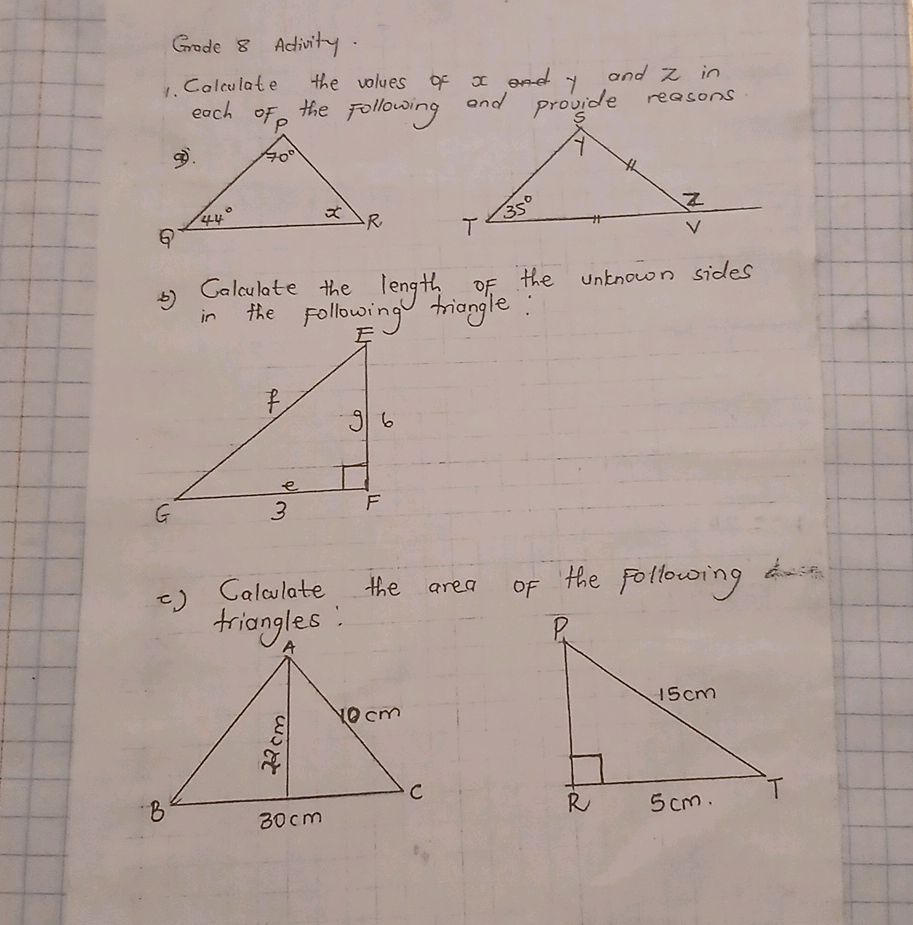 Grade 8 Activity.
1. Calculate the values of x and y and z in
each of the following and provide reasons
a).
P
70°
44°
x
Q
R
S
y
35°
z
T
V
b) Calculate the length of the unknown sides
in the following triangle :
E
f
g 6
e
G
3
F
c) Calculate the area of the following
triangles :
A
10cm
B
C
30cm
P
15cm
R
5cm.
T